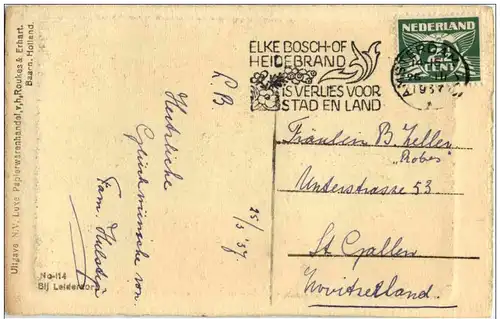 Uitgave N.V. Luxe Papierwarenhandel v.h. Roukes & Erhart.
Baarn. Holland.
No-114
Bij Leiderdorp
L B
Herzliche
Glückwünsche von
Fam.
25/3 '37
ELKE BOSCH-OF
HEIDEBRAND
IS VERLIES VOOR
STAD EN LAND
NEDERLAND
CENT
1937
Fräulein B. Zeller
"Robes"
Unterstrasse 53
St Gallen
Zwitserland.